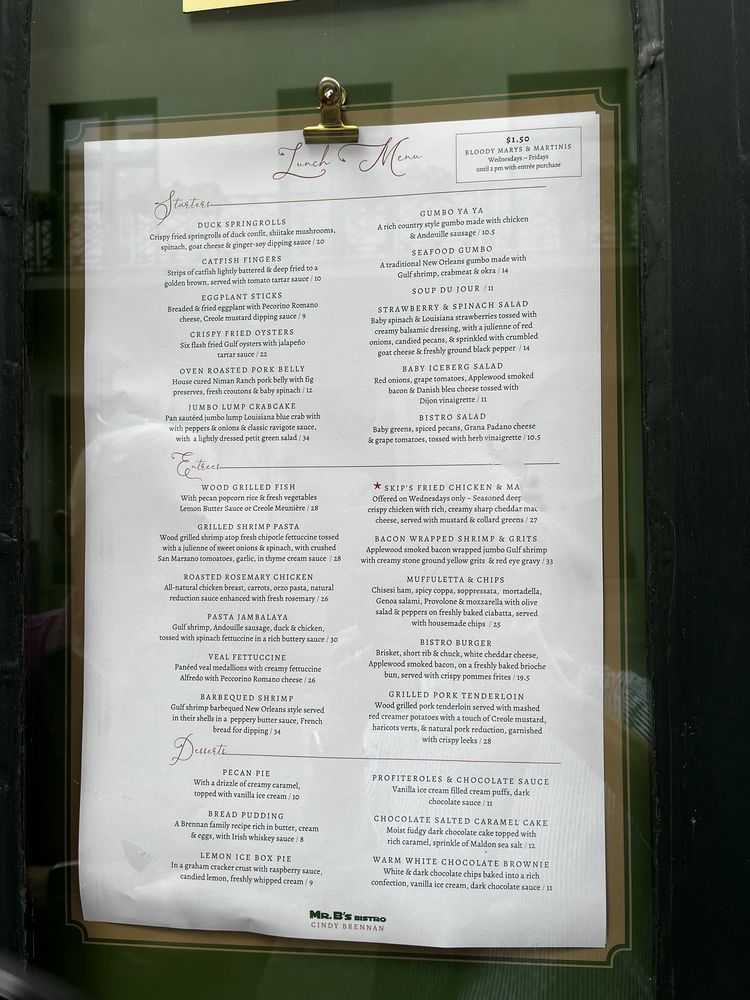 Lunch Menu
$1.50
BLOODY MARYS & MARTINIS
Wednesdays – Fridays
until 2 pm with entrée purchase
Starters
DUCK SPRINGROLLS
Crispy fried springrolls of duck confit, shiitake mushrooms,
spinach, goat cheese & ginger-soy dipping sauce / 20
CATFISH FINGERS
Strips of catfish lightly battered & deep fried to a
golden brown, served with tomato tartar sauce / 10
EGGPLANT STICKS
Breaded & fried eggplant with Pecorino Romano
cheese, Creole mustard dipping sauce / 9
CRISPY FRIED OYSTERS
Six flash fried Gulf oysters with jalapeño
tartar sauce / 22
OVEN ROASTED PORK BELLY
House cured Niman Ranch pork belly with fig
preserves, fresh croutons & baby spinach / 12
JUMBO LUMP CRABCAKE
Pan sautéed jumbo lump Louisiana blue crab with
with peppers & onions & classic ravigote sauce,
with a lightly dressed petit green salad / 34
GUMBO YA YA
A rich country style gumbo made with chicken
& Andouille sausage / 10.5
SEAFOOD GUMBO
A traditional New Orleans gumbo made with
Gulf shrimp, crabmeat & okra / 14
SOUP DU JOUR / 11
STRAWBERRY & SPINACH SALAD
Baby spinach & Louisiana strawberries tossed with
creamy balsamic dressing, with a julienne of red
onions, candied pecans, & sprinkled with crumbled
goat cheese & freshly ground black pepper / 14
BABY ICEBERG SALAD
Red onions, grape tomatoes, Applewood smoked
bacon & Danish bleu cheese tossed with
Dijon vinaigrette / 11
BISTRO SALAD
Baby greens, spiced pecans, Grana Padano cheese
& grape tomatoes, tossed with herb vinaigrette / 10.5
Entrees
WOOD GRILLED FISH
With pecan popcorn rice & fresh vegetables
Lemon Butter Sauce or Creole Meunière / 28
GRILLED SHRIMP PASTA
Wood grilled shrimp atop fresh chipotle fettuccine tossed
with a julienne of sweet onions & spinach, with crushed
San Marzano tomoatoes, garlic, in thyme cream sauce / 28
ROASTED ROSEMARY CHICKEN
All-natural chicken breast, carrots, orzo pasta, natural
reduction sauce enhanced with fresh rosemary / 26
PASTA JAMBALAYA
Gulf shrimp, Andouille sausage, duck & chicken,
tossed with spinach fettuccine in a rich buttery sauce / 30
VEAL FETTUCCINE
Panéed veal medallions with creamy fettuccine
Alfredo with Peccorino Romano cheese / 26
BARBEQUED SHRIMP
Gulf shrimp barbequed New Orleans style served
in their shells in a peppery butter sauce, French
bread for dipping / 34
★ SKIP'S FRIED CHICKEN & MA
Offered on Wednesdays only – Seasoned deep
crispy chicken with rich, creamy sharp cheddar mac
cheese, served with mustard & collard greens / 27
BACON WRAPPED SHRIMP & GRITS
Applewood smoked bacon wrapped jumbo Gulf shrimp
with creamy stone ground yellow grits & red eye gravy / 33
MUFFULETTA & CHIPS
Chisesi ham, spicy coppa, soppressata, mortadella,
Genoa salami, Provolone & mozzarella with olive
salad & peppers on freshly baked ciabatta, served
with housemade chips / 25
BISTRO BURGER
Brisket, short rib & chuck, white cheddar cheese,
Applewood smoked bacon, on a freshly baked brioche
bun, served with crispy pommes frites / 19.5
GRILLED PORK TENDERLOIN
Wood grilled pork tenderloin served with mashed
red creamer potatoes with a touch of Creole mustard,
haricots verts, & natural pork reduction, garnished
with crispy leeks / 28
Desserts
PECAN PIE
With a drizzle of creamy caramel,
topped with vanilla ice cream / 10
BREAD PUDDING
A Brennan family recipe rich in butter, cream
& eggs, with Irish whiskey sauce / 8
LEMON ICE BOX PIE
In a graham cracker crust with raspberry sauce,
candied lemon, freshly whipped cream / 9
PROFITEROLES & CHOCOLATE SAUCE
Vanilla ice cream filled cream puffs, dark
chocolate sauce / 11
CHOCOLATE SALTED CARAMEL CAKE
Moist fudgy dark chocolate cake topped with
rich caramel, sprinkle of Maldon sea salt / 12
WARM WHITE CHOCOLATE BROWNIE
White & dark chocolate chips baked into a rich
confection, vanilla ice cream, dark chocolate sauce / 11
MR. B'S BISTRO
CINDY BRENNAN